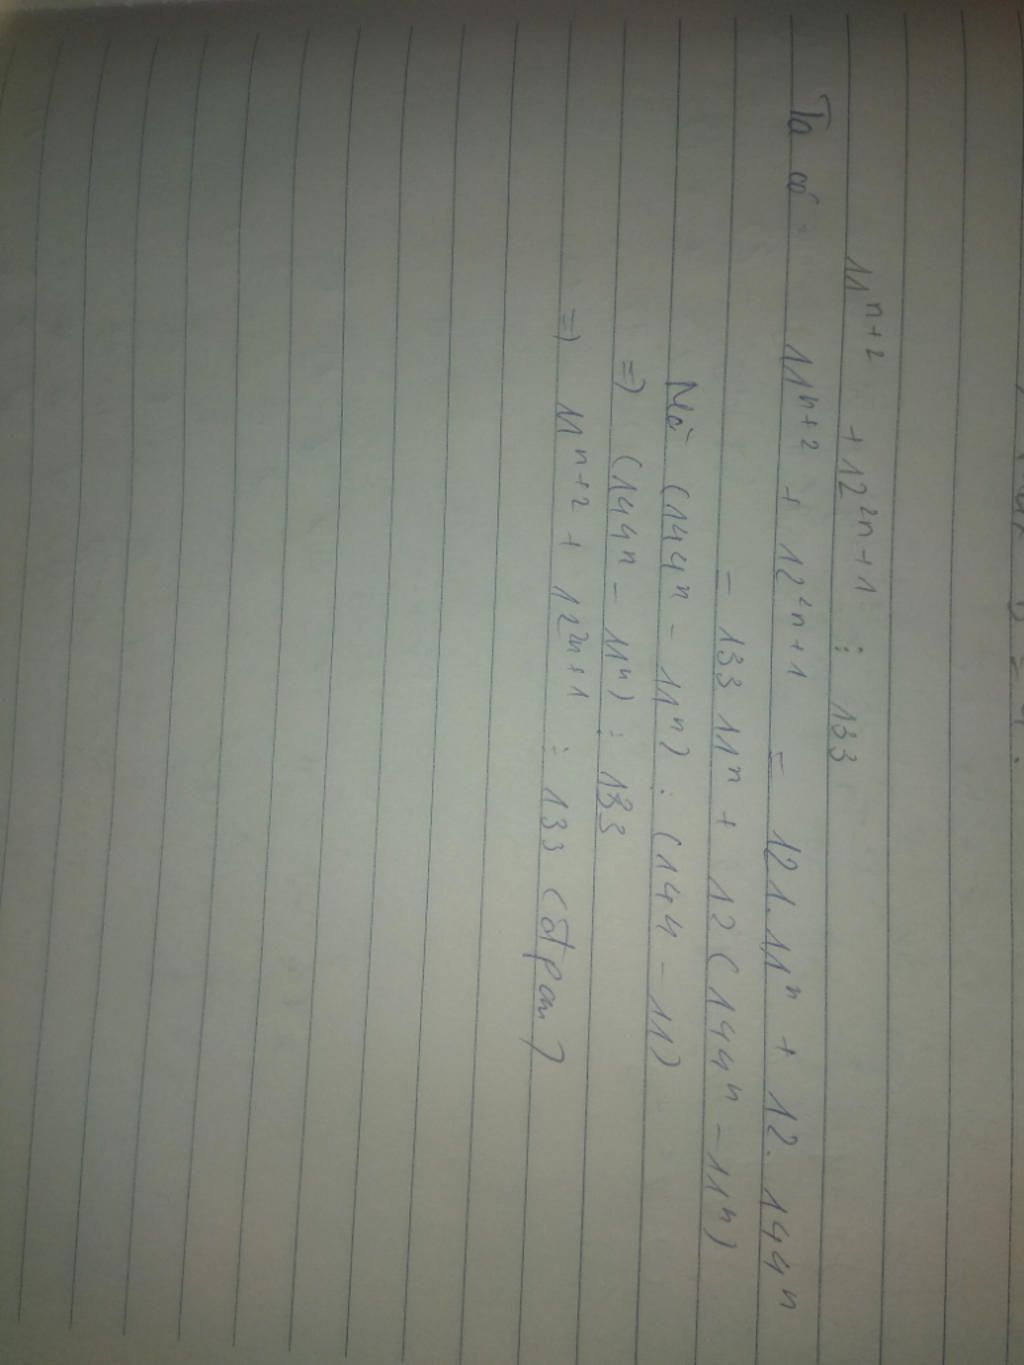 11ⁿ⁺² + 12²ⁿ⁺¹ ⋮ 133
Ta có: 11ⁿ⁺² + 12²ⁿ⁺¹ = 121.11ⁿ + 12.144ⁿ
= 133 11ⁿ + 12(144ⁿ - 11ⁿ)
Mà (144ⁿ - 11ⁿ) ⋮ (144 - 11)
=> (144ⁿ - 11ⁿ) ⋮ 133
=> 11ⁿ⁺² + 12²ⁿ⁺¹ ⋮ 133 (đpcm)